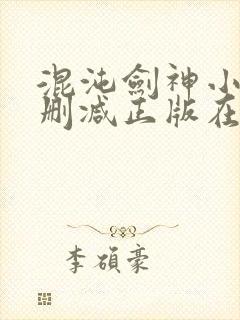 混沌劍神小
刪減正版在
李碩豪